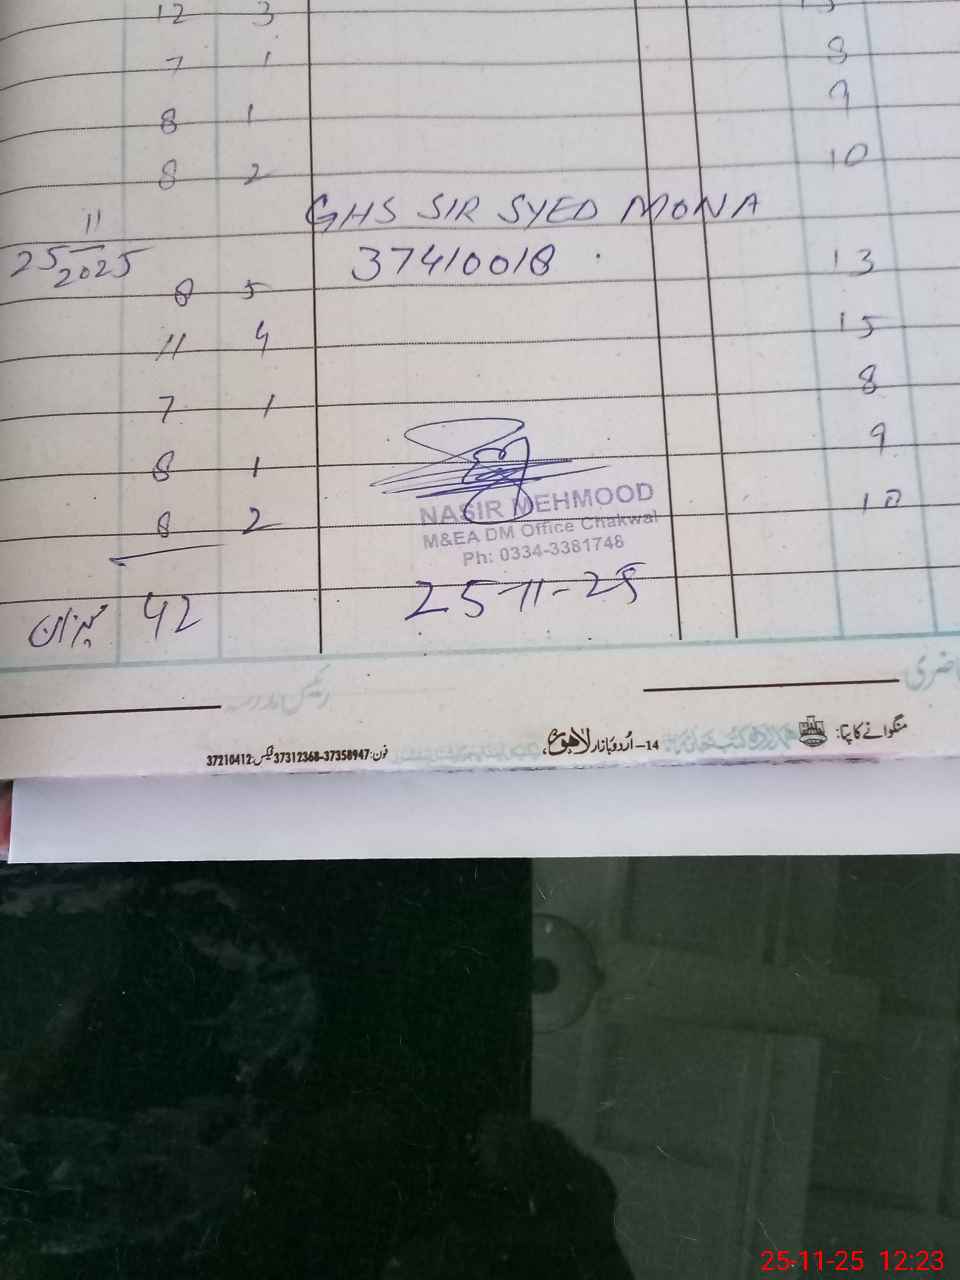 12 3 13
7 1 8
8 1 9
8 2 10
GHS SIR SYED MONA
25 11 2025
37410018
8 5 13
11 4 15
7 1 8
8 1 9
8 2 10
NASIR MEHMOOD
M&EA DM Office Chakwal
Ph: 0334-3381748
میزان 42
25-11-25
رئیس مدرسہ
منگوانے کا پتا:
14-اُردو بازار لاہور،
فون:37358947-37312368 فیکس:37210412
25-11-25 12:23